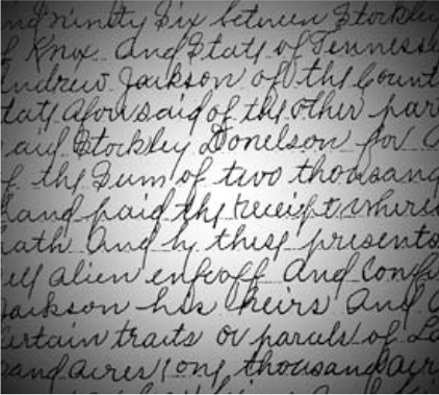 nd ninety Six between Stockley
f Knox and State of Tennesse
Andrew Jackson of the Count
tate aforesaid of the other par
aid Stockley Donelson for
f the Sum of two thousand
hand paid the receipt where
ath And by these presents
ell alien enfeoff And Confi
Jackson his heirs And
Certain traits or parcels of La
and acres (one thousand acr